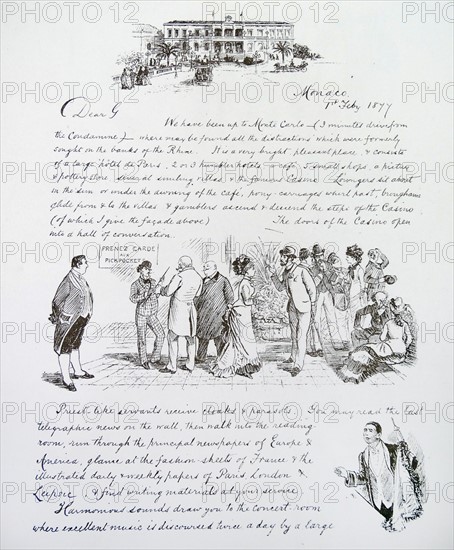 Monaco
1st Feby 1877
Dear G
We have been up to Monte Carlo (3 minutes drive from
the Condamine) where may be found all the distractions which were formerly
sought on the banks of the Rhine. It is a very bright, pleasant place, & consists
of a large hôtel de Paris, 2 or 3 humbler hotels, a café, 5 small shops, a picture
& pottery store, several smiling villas & the famous Casino. Loungers sit about
in the sun or under the awning of the café, pony-carriages whirl past, broughams
glide from & to the villas & gamblers ascend & descend the steps of the Casino
(of which I give the façade above) The doors of the Casino open
into a hall of conversation.
PRENEZ GARDE
AUX
PICKPOCKET
Priest-like servants receive cloaks & parasols. You may read the last
telegraphic news on the wall, then walk into the reading
room, run through the principal newspapers of Europe &
America, glance at the fashion-sheets of France & the
illustrated daily & weekly papers of Paris, London &
Leipsic, & find writing materials at your service.
Harmonious sounds draw you to the concert-room
where excellent music is discoursed twice a day by a large
PHOTO12